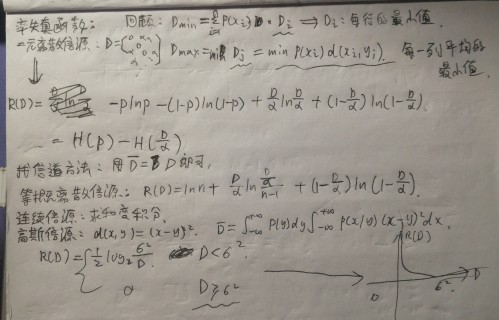 率失真函数：
回顾： Dmin = Σ P(xi) Di ⟹ Di：每行的最小值.
二元离散信源： D = (0 α α 0) Dmax = min Dj = min P(xi) d(xi, yj) 每一列平均的最小值.
R(D) = -plnp - (1-p)ln(1-p) + D/α ln D/α + (1-D/α) ln(1-D/α).
= H(p) - H(D/α).
找信道方法： 用 D̅ = D 即可.
等概离散信源： R(D) = ln n + D/α ln (D/α)/(n-1) + (1-D/α) ln(1-D/α).
连续信源： 求和变积分.
高斯信源： d(x,y) = (x-y)². D̅ = ∫_{-∞}^{+∞} P(y)dy ∫_{-∞}^{+∞} P(x/y) (x-y)² dx.
R(D) = { 1/2 log₂ σ²/D D < σ².
0 D ≥ σ²
R(D)
0
σ²
D